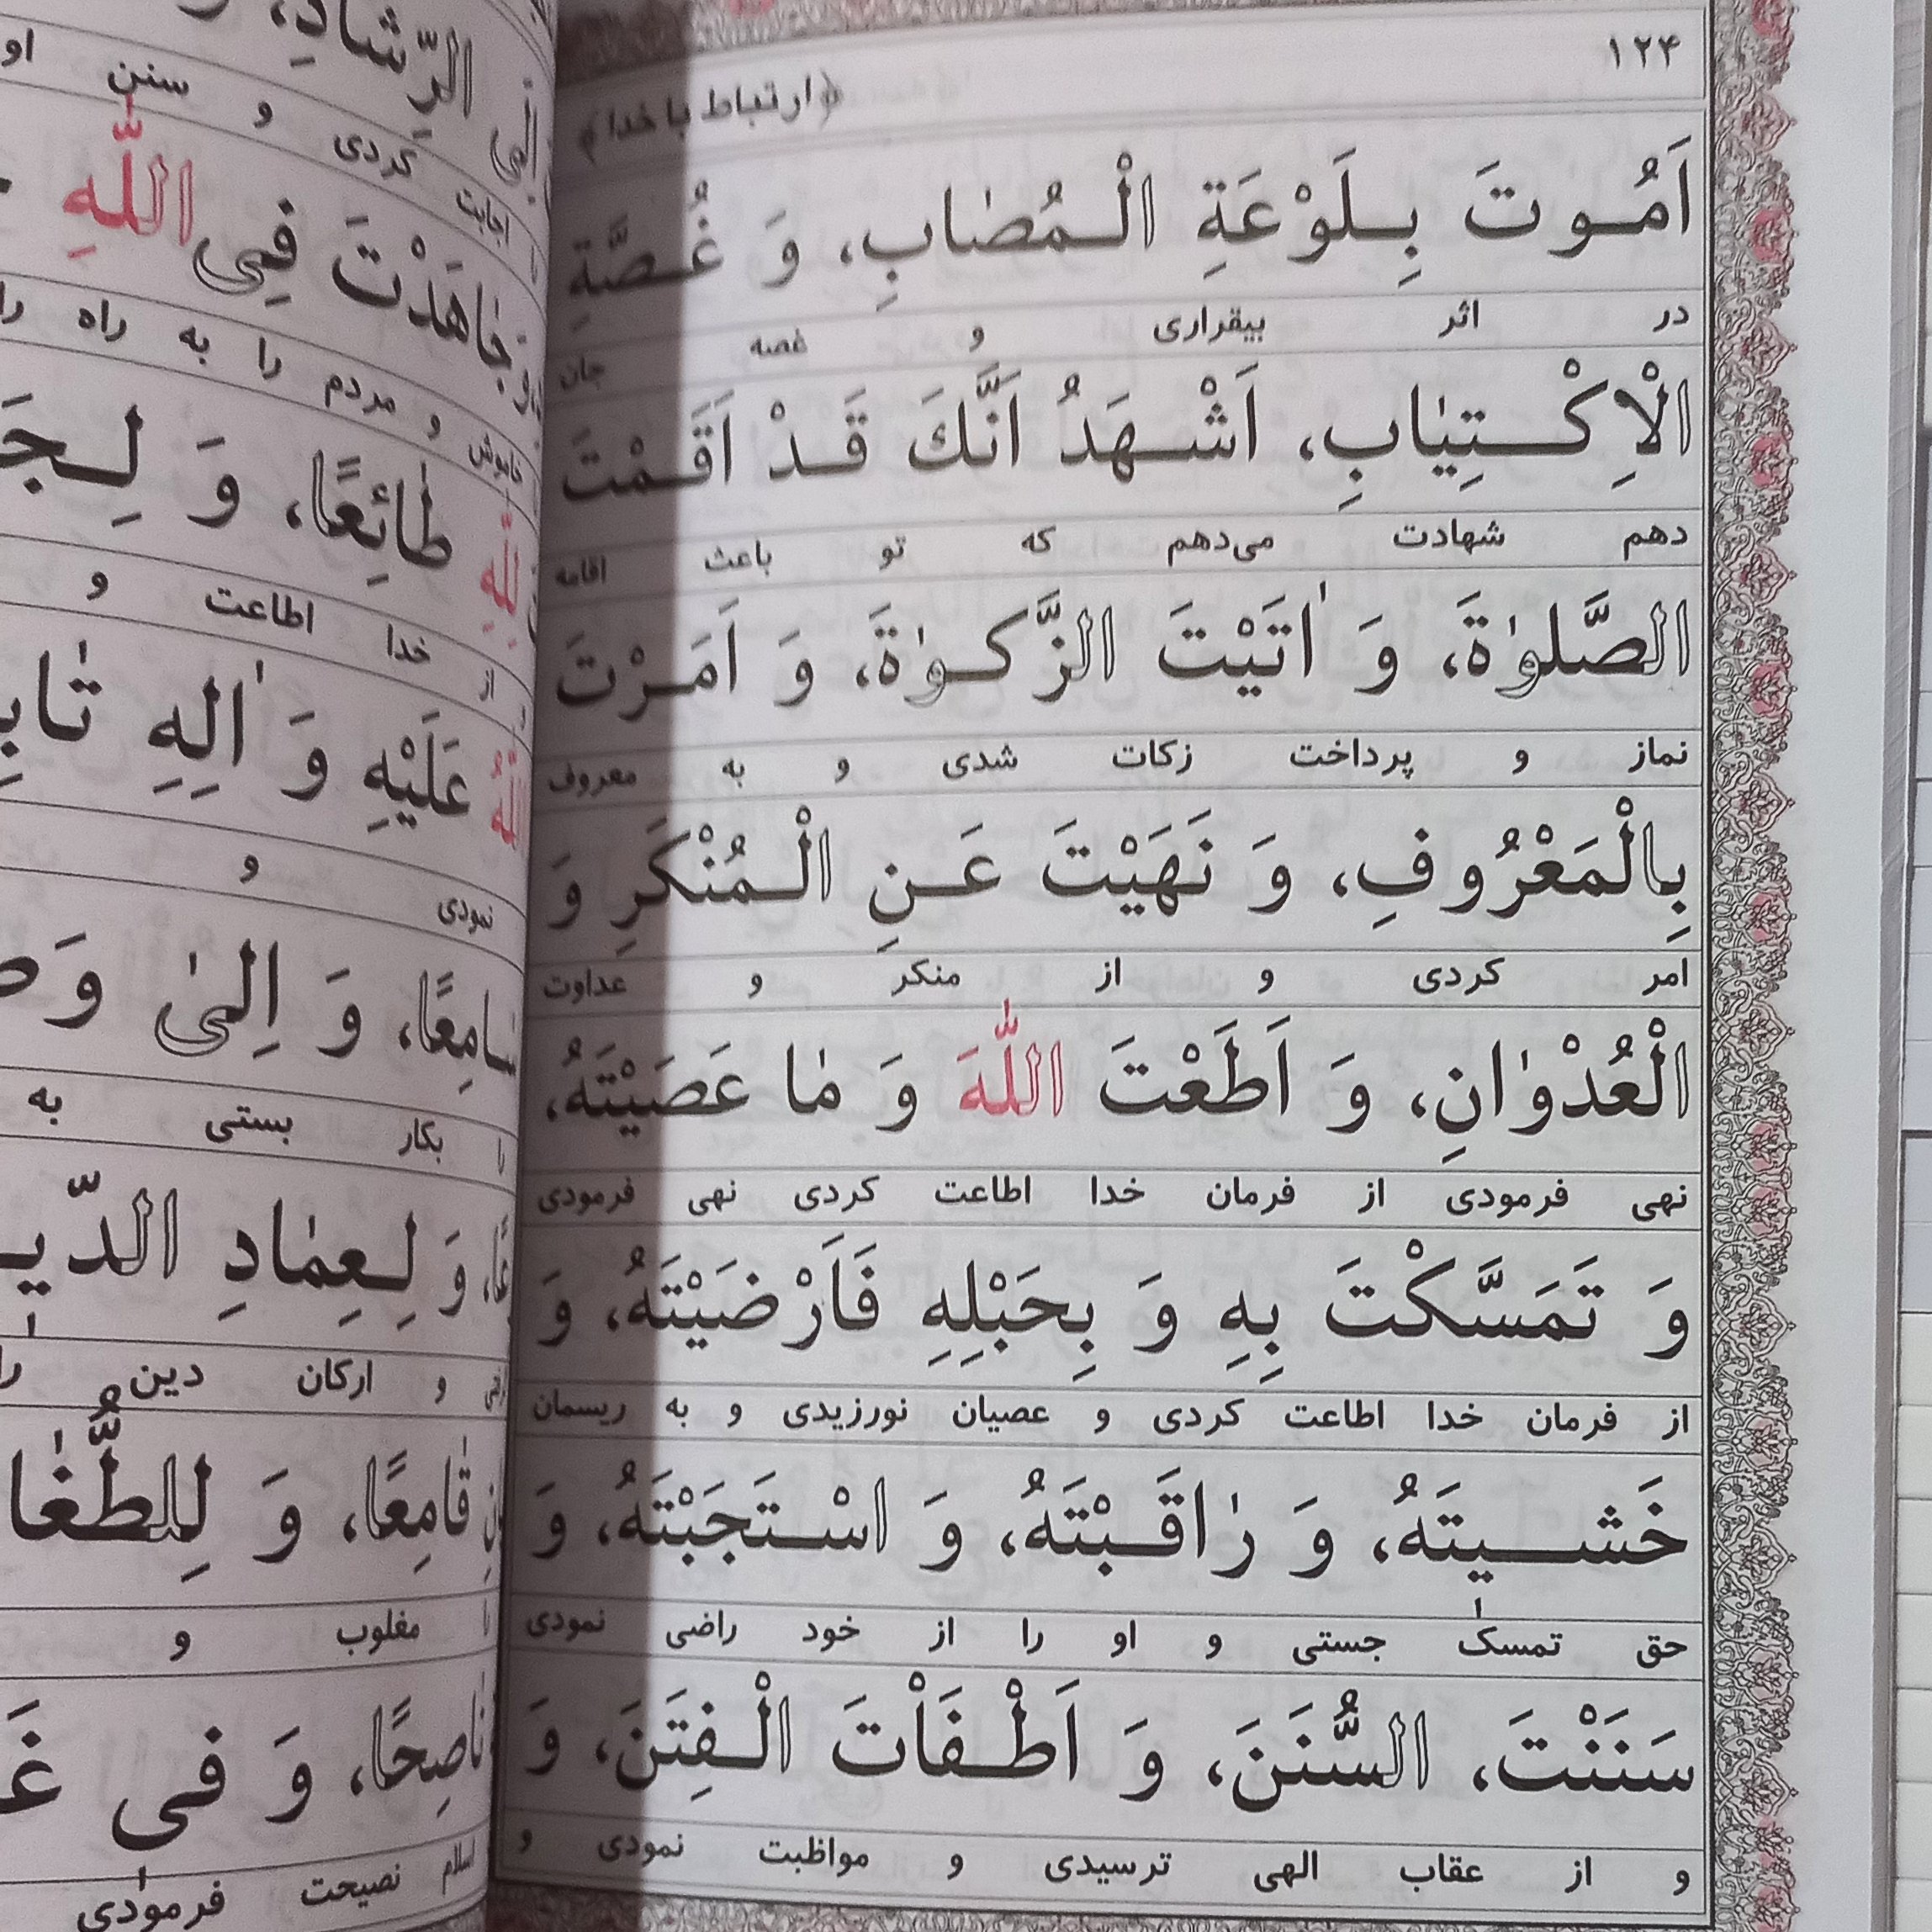 ۱۲۴
﴿ارتباط با خدا﴾
اَمُوتَ بِلَوْعَةِ الْمُصٰابِ، وَ غُصَّةِ
در اثر بیقراری و غصه جان
الْاِكْتِيٰابِ، اَشْهَدُ اَنَّكَ قَدْ اَقَمْتَ
دهم شهادت می‌دهم که تو باعث اقامه
الصَّلوٰةَ، وَ اٰتَيْتَ الزَّكوٰةَ، وَ اَمَرْتَ
نماز و پرداخت زکات شدی و به معروف
بِالْمَعْرُوفِ، وَ نَهَيْتَ عَنِ الْمُنْكَرِ وَ
امر کردی و از منکر و عداوت
الْعُدْوٰانِ، وَ اَطَعْتَ اللّٰهَ وَ مٰا عَصَيْتَهُ،
نهی فرمودی از فرمان خدا اطاعت کردی نهی فرمودی
وَ تَمَسَّكْتَ بِهِ وَ بِحَبْلِهِ فَاَرْضَيْتَهُ، وَ
از فرمان خدا اطاعت کردی و عصیان نورزیدی و به ریسمان
خَشيتَهُ، وَ رٰاقَبْتَهُ، وَ اسْتَجَبْتَهُ، وَ
حق تمسک جستی و او را از خود راضی نمودی
سَنَنْتَ، السُّنَنَ، وَ اَطْفَاْتَ الْفِتَنَ، وَ
و از عقاب الهی ترسیدی و مواظبت نمودی و
اِلَى الرِّشادِ،
اجابت کردی و سنن او
وَ جٰاهَدْتَ فِى اللّٰهِ
خاموش و مردم را به راه را
لِلّٰهِ طٰائِعًا، وَ
از خدا اطاعت و
اللّٰهُ عَلَيْهِ وَ اٰلِهِ
نمودی و
سٰامِعًا، وَ اِلىٰ
را بکار بستی به
وَ لِعِمٰادِ
و ارکان دین را
قٰامِعًا، وَ لِلطُّغٰا
را مغلوب و
نٰاصِحًا، وَ فى
اسلام نصیحت فرمودی